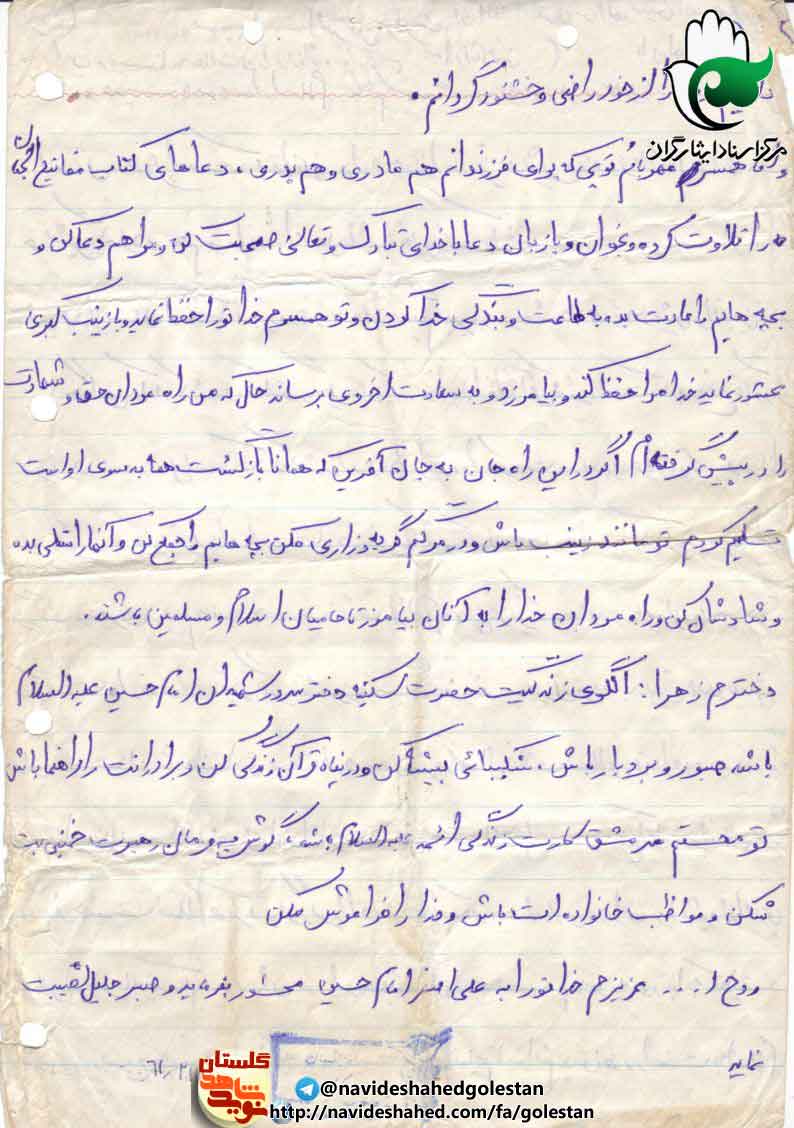 را از خود راضی و خشنود گردانم.
مرکز اسناد ایثارگران
همسر مهربانم تویی که برای فرزندانم هم مادری و هم پدری، دعاهای کتاب مفاتیح الجنان
را تلاوت کرده و بخوان و با زبان دعا با خدای تبارک و تعالی صحبت کن و مرا هم دعا کن و
بچه هایم را عادت بده به طاعت و بندگی خدا کردن و تو همسرم خدا تو را حفظ نماید و با زینب کبری
محشور نماید خدا مرا حفظ کند و بیامرزد و به سعادت اخروی برساند حال که من راه مردان حق و شهادت
را در پیش گرفته ام اگر در این راه جان به جان آفرین که همانا بازگشت همه به سوی اوست
تسلیم کردم تو مانند زینب باش و در مرگم گریه و زاری مکن بچه هایم را جمع کن و آنها را تسلی بده
و شادشان کن و راه مردان خدا را به آنان بیاموز تا حامیان اسلام و مسلمین باشند.
دخترم زهرا: الگوی زندگیت حضرت سکینه دختر سرور شهیدان امام حسین علیه السلام
باشد صبور و بردبار باش، شکیبائی پیشه کن و در پناه قرآن زندگی کن و برادرانت را راهنما باش
تو محصلی سرمشق کارت زندگی ائمه علیه السلام باشد، گوش به فرمان رهبرت خمینی بت
شکن و مواظب خانواده ات باش و خدا را فراموش مکن
روح ا... عزیزم خدا تو را به علی اصغر امام حسین محشور بفرماید و صبر جلیل نصیبت
نماید
گلستان
نوید شاهد
@navideshahedgolestan
http://navideshahed.com/fa/golestan